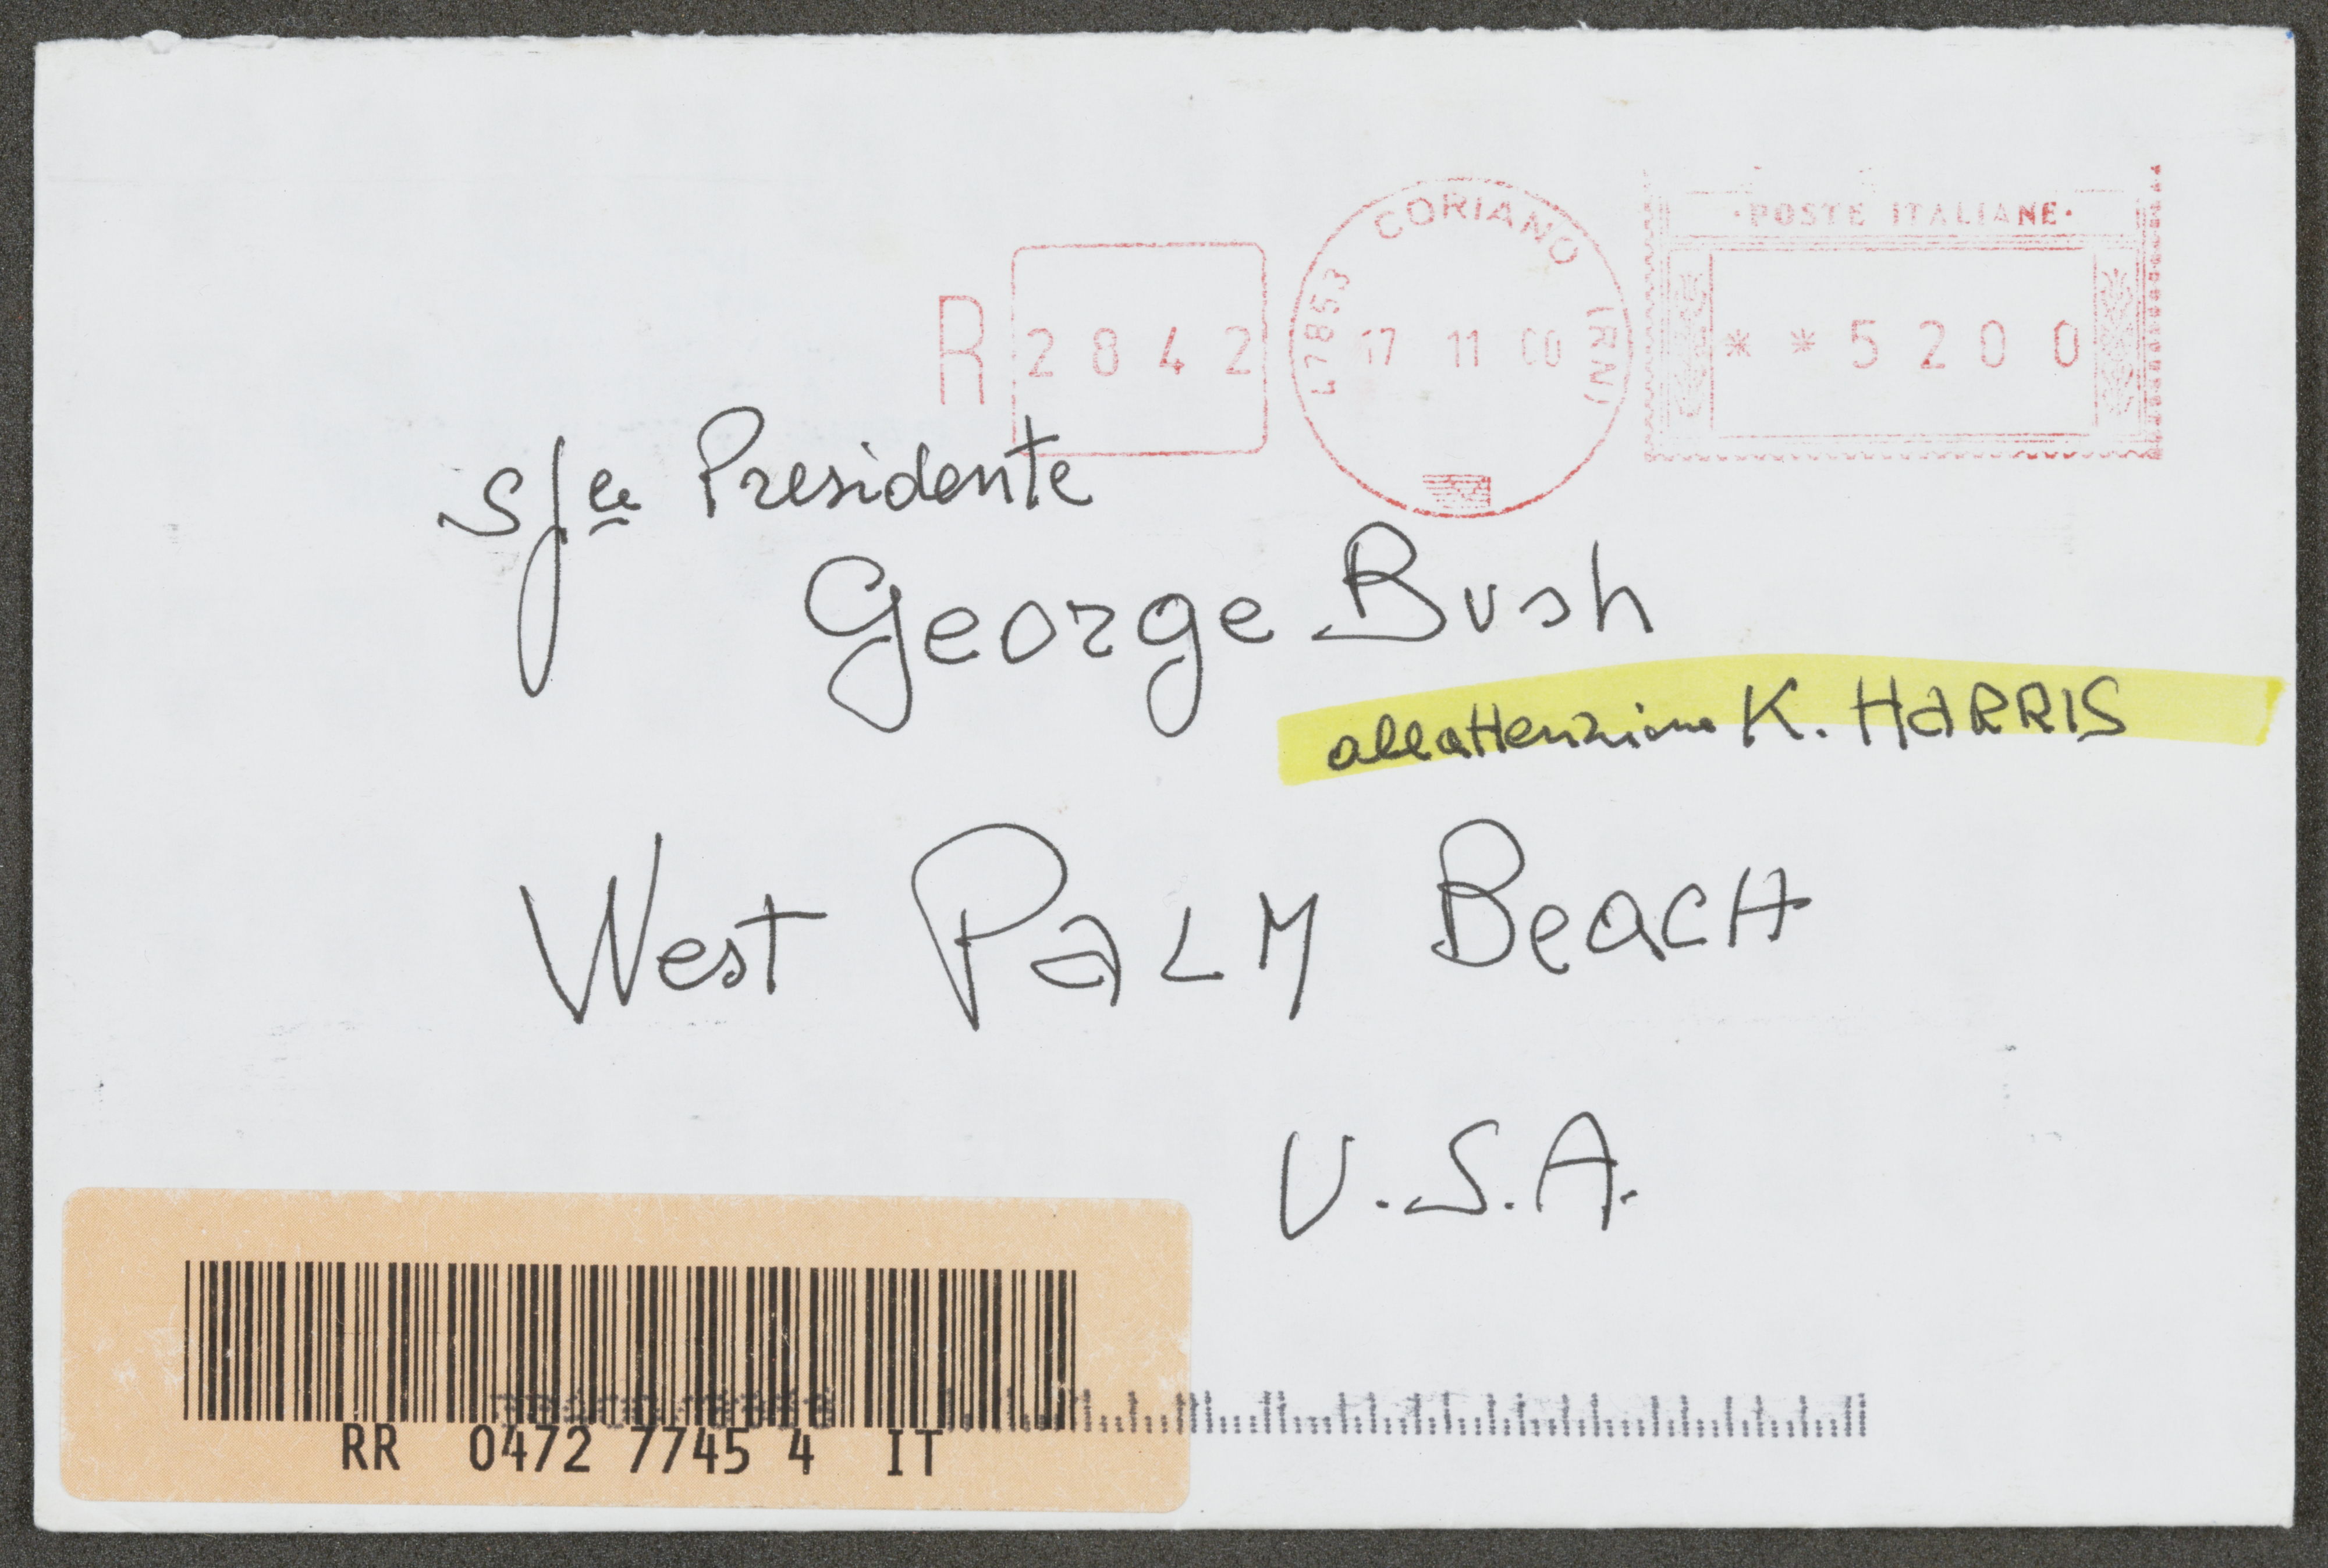 ·POSTE ITALIANE·
R 2842
47853 CORIANO (RN)
17 11 00
**5200
Presidente
George Bush
all attenzione K. HARRIS
West PALM BEACH
U.S.A.
RR 0472 7745 4 IT